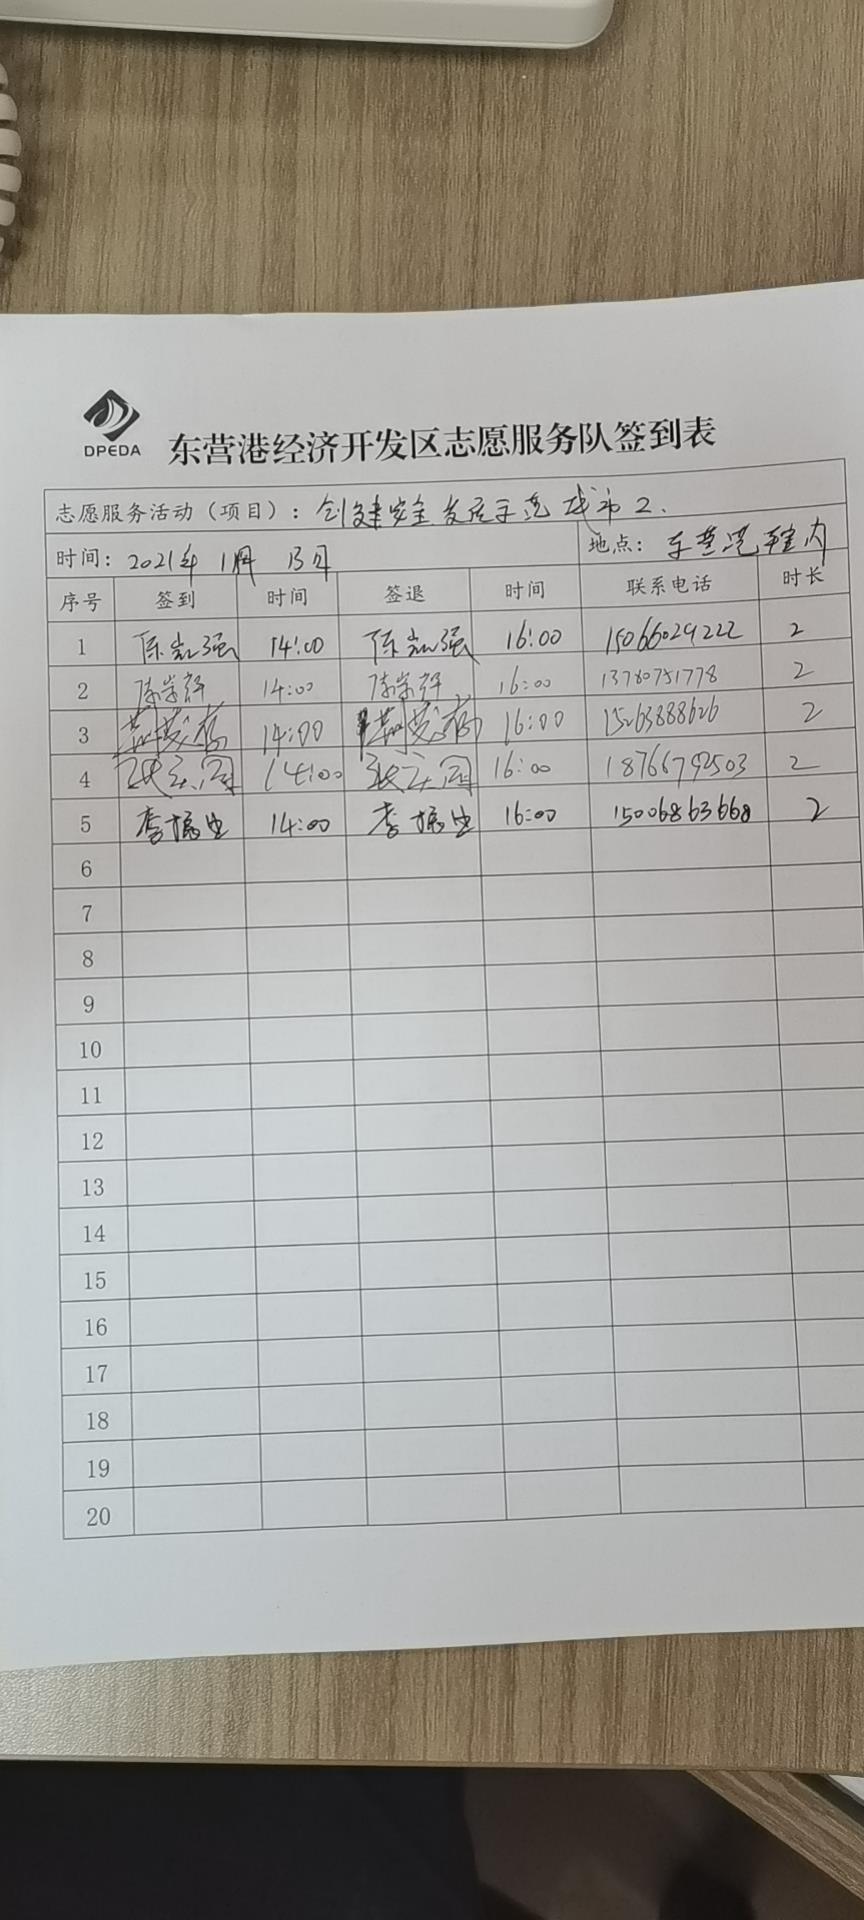 DPEDA
东营港经济开发区志愿服务队签到表
志愿服务活动（项目）：创建安全发展示范城市2.
时间：2021年1月13日 地点：东营港辖内
序号 签到 时间 签退 时间 联系电话 时长
1 陈凯强 14:00 陈凯强 16:00 15066029222 2
2 14:00 16:00 13780751778 2
3 14:00 16:00 15263888626 2
4 14:00 16:00 18766792503 2
5 李振生 14:00 李振生 16:00 15006863668 2
6
7
8
9
10
11
12
13
14
15
16
17
18
19
20